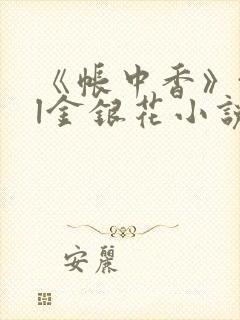 《帐中香》
|金银花小説
安麗